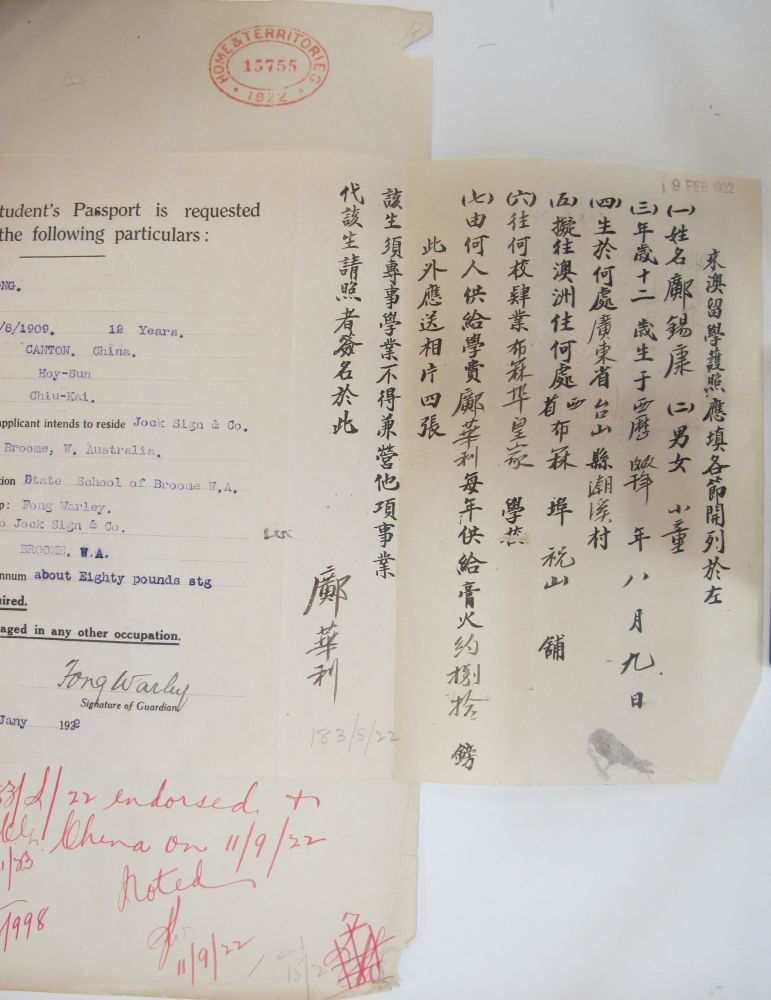 HOME & TERRITORIES
15755
1922
tudent's Passport is requested
the following particulars:
ONG.
/8/1909. 12 Years.
CANTON. China.
Hoy-Sun
Chiu-Kai.
applicant intends to reside Jock Sign & Co.
Broome, W. Australia.
tion State School of Broome W.A.
p: Fong Warley.
o Jock Sign & Co.
BROOME. W.A.
annum about Eighty pounds stg
uired.
aged in any other occupation.
Fong Warley
Signature of Guardian
Jany 1922
183/S/22
/22 endorsed
China on 11/9/22
Noted
11/9/22
998
18 FEB 1922
來澳留學護照應填各節開列於左
(一)姓名鄺錫康 (二)男女 小童
(三)年歲十二歲生于西歷 年八月九日
(四)生於何處廣東省台山縣潮溪村
(五)擬往澳洲住何處西省布冧埠祝山舖
(六)往何校肄業布冧埠皇家 學
(七)由何人供給學費鄺華利每年供給膏火約捌拾鎊
此外應送相片四張
該生須專事學業不得兼營他項事業
代該生請照者簽名於此
鄺華利